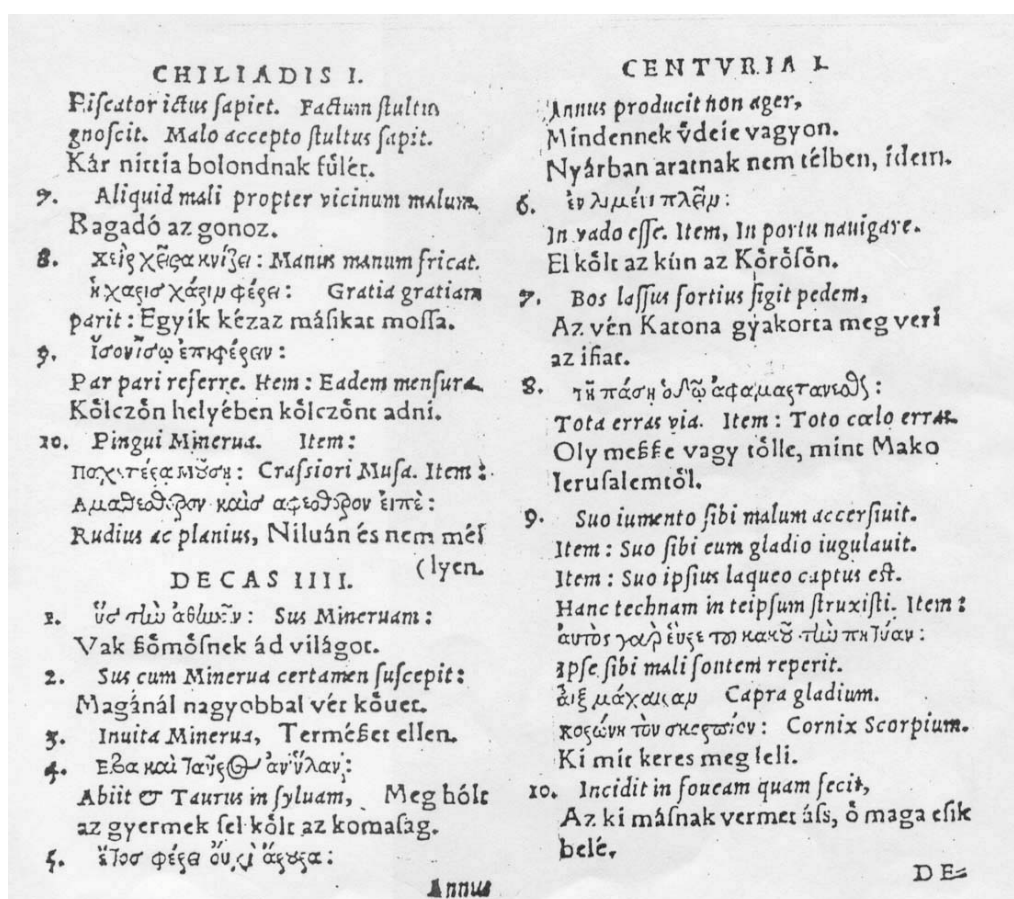 CHILIADIS I.
Piſcator ictus ſapiet. Factum ſtultus
gnoſcit. Malo accepto ſtultus ſapit.
Kár nittia bolondnak fůlét.
7. Aliquid mali propter vicinum malum.
Ragadó az gonoz.
8. Manus manum fricat.
Gratia gratiam
parit: Egyík kézaz máſikat moſſa.
9. ἴσον ἴσῳ ἐπιφέρειν:
Par pari referre. Item: Eadem menſura.
Kǒlczǒn helyében kǒlczǒnt adní.
10. Pingui Minerua. Item:
Craſsiori Muſa. Item:
Rudius ac planius, Niluán és nem méſ
(lyen.
DECAS IIII.
1. Sus Mineruam:
Vak ßǒmǒſnek ád világot.
2. Sus cum Minerua certamen ſuſcepit:
Magánál nagyobbal vét kǒuet.
3. Inuita Minerua, Terméßet ellen.
4.
Abiit & Taurus in ſyluam, Meg hólt
az gyermek fel kǒlt az komaſag.
5.
Annus
CENTVRIA I.
Annus producit non ager,
Mindennek v̊deíe vagyon.
Nyárban aratnak nem télben, ídem.
6.
In vado eſſe. Item, In portu nauigare.
El kǒlt az kún az Kǒrǒſǒn.
7. Bos laſſus fortius figit pedem,
Az vén Katona gyakorta meg verí
az ifiat.
8.
Tota erras via. Item: Toto cœlo erras.
Oly meßße vagy tǒlle, mínt Mako
Ieruſalemtǒl.
9. Suo iumento ſibi malum accerſiuit.
Item: Suo ſibi eum gladio iugulauit.
Item: Suo ipſius laqueo captus eſt.
Hanc technam in teipſum ſtruxiſti. Item:
Ipſe ſibi mali fontem reperit.
Capra gladium.
Cornix Scorpium.
Ki mit keres meg leli.
10. Incidit in foueam quam fecit,
Az ki máſnak vermet áſs, ǒ maga eſik
belé.
DE-